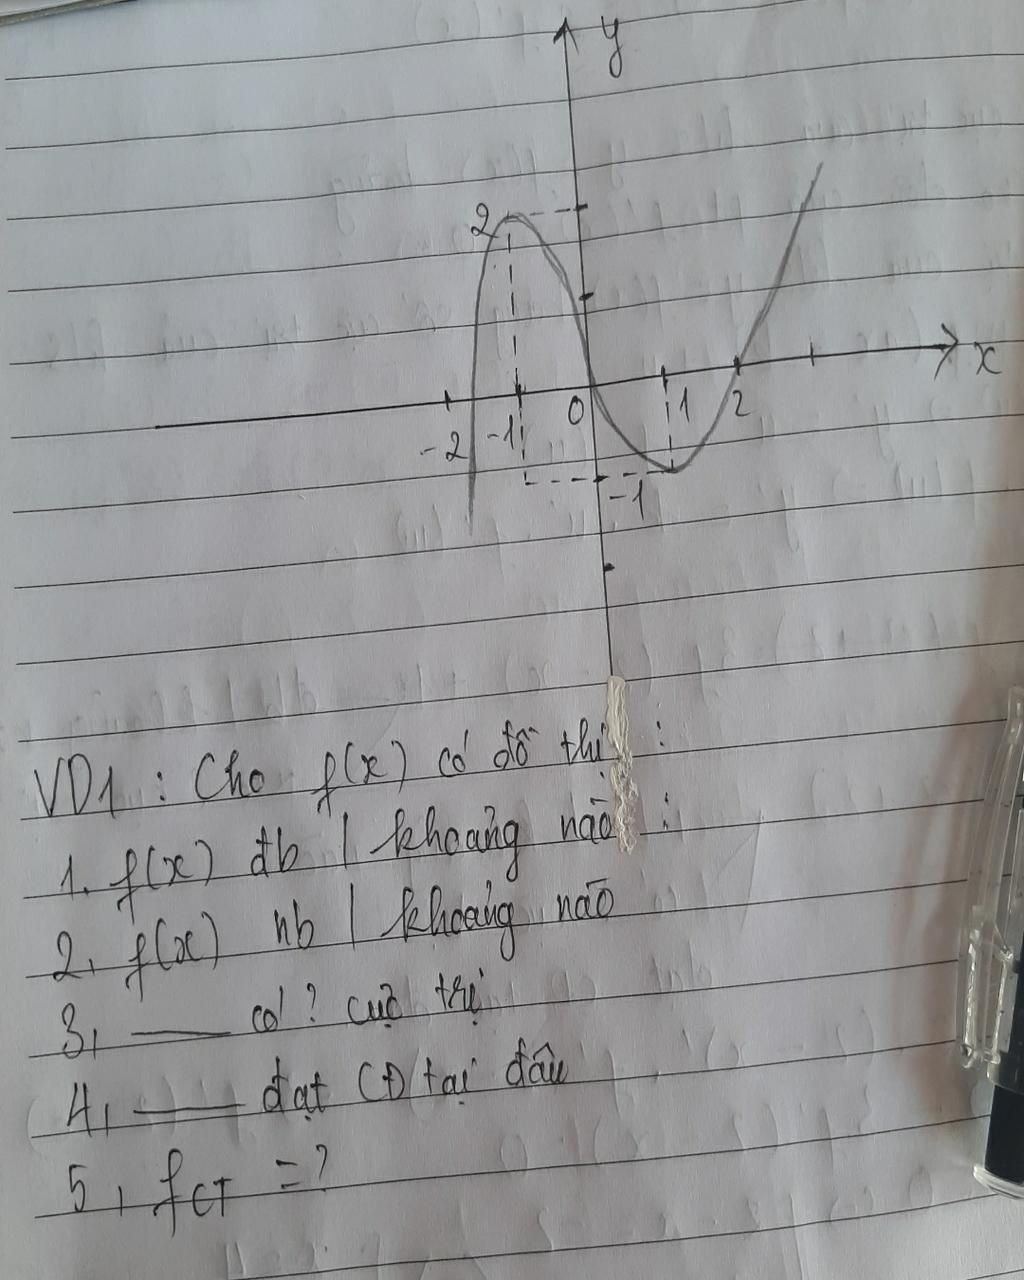 y
2
x
0
1
2
-2
-1
-1
VD1 : Cho f(x) có đồ thị :
1. f(x) đb / khoảng nào :
2, f(x) nb / khoảng nào
3, —— có ? cực trị
4, —— đạt CĐ tại đâu
5, fCT = ?